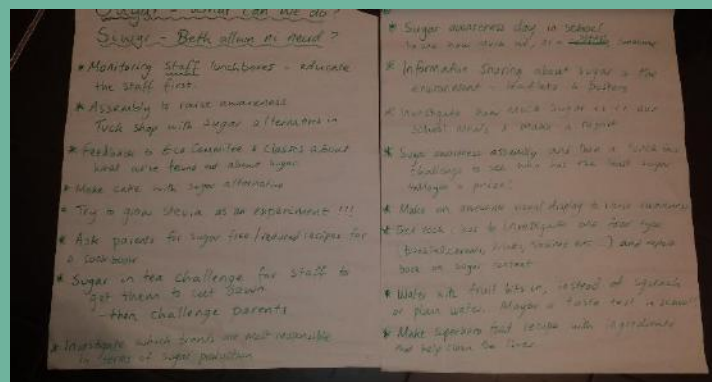 Sugar - What can we do?
Siwgr - Beth allwn ni neud?
* Monitoring staff lunchboxes - educate
the staff first.
* Assembly to raise awareness
Tuck shop with sugar alternatives in
* Feedback to Eco Committee & classes about
what we've found out about sugar
* Make cake with sugar alternative
* Try to grow stevia as an experiment !!!
* Ask parents for sugar free/reduced recipes for
a cook book
* Sugar in tea challenge for staff to
get them to cut down
- then challenge parents
* Investigate which brands are most responsible
in terms of sugar production
* Sugar awareness day in school
* Information sharing about sugar & the
environment - leaflets & posters
* Investigate how much sugar is in our
school meals & make a report
* Sugar awareness assembly and have a lunch box
challenge to see who has the least sugar
Maybe a prize?
* Make an awesome visual display to raise awareness
* Get each class to investigate one food type
(breakfast cereals, drinks, snacks etc...) and report
back on sugar content
* Water with fruit bits in, instead of squash
or plain water. Maybe a taste test in school?
* Make superhero food recipe with ingredients
that help clean the liver